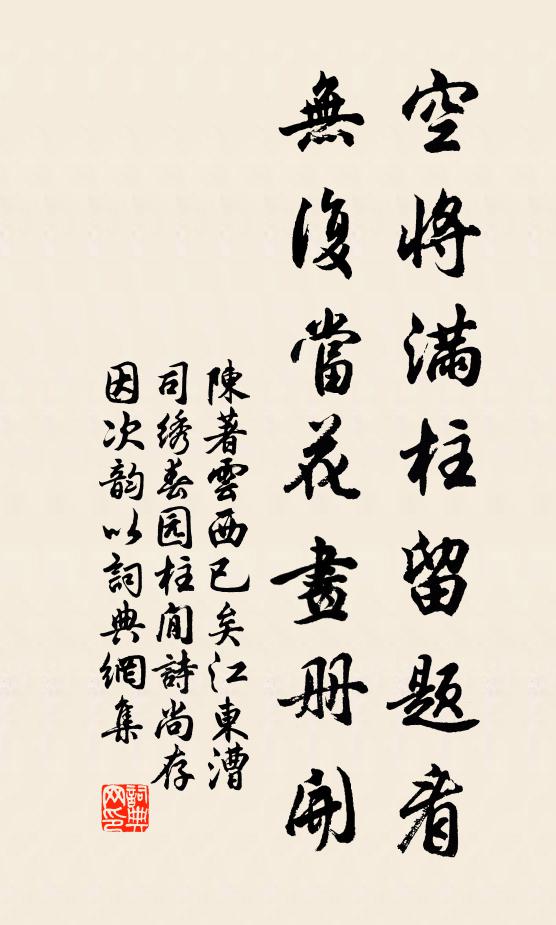 空將滿柱留題看
無復當花畫册開
陳著雲西已矣江東漕
司绣春园柱间詩尚存
因次韵以詞典網集
詞典网印